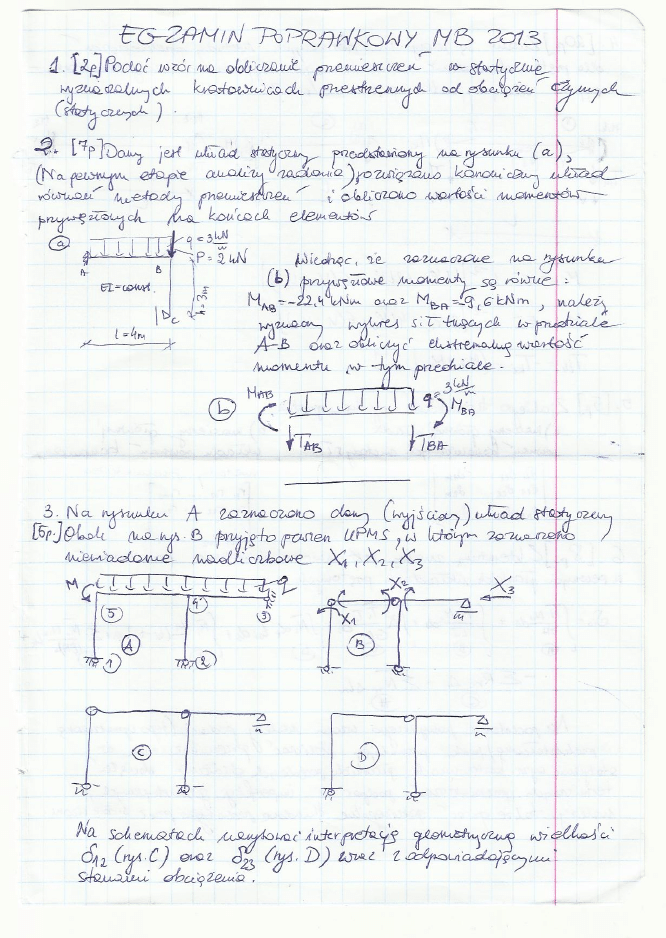 EGZAMIN POPRAWKOWY MB 2013
1. [2p] Podać wzór na obliczanie przemieszczeń w statycznie
wyznaczalnych kratownicach przestrzennych od obciążeń czynnych
(statycznych).
2. [7p] Dany jest układ statyczny przedstawiony na rysunku (a),
(Na pewnym etapie analizy zadania), rozwiązano kanoniczny układ
równań metody przemieszczeń i obliczono wartości momentów
przywęzłowych na końcach elementów
a
q = 3 kN/m
P = 2 kN
A
B
EI = const.
h = 3m
C
L = 4m
Wiedząc, że zaznaczone na rysunku
(b) przywęzłowe momenty są równe:
M_AB = -22,4 kNm oraz M_BA = 9,6 kNm, należy
wyznaczyć wykres sił tnących w przedziale
A-B oraz obliczyć ekstremalną wartość
momentu w tym przedziale.
b
M_AB
q = 3 kN/m
M_BA
T_AB
T_BA
3. Na rysunku A zaznaczono dany (wyjściowy) układ statyczny
[5p.] Obok na rys. B przyjęto pewien UPMS, w którym zaznaczono
niewiadome nadliczbowe X1, X2, X3
M
q
5
4
3
A
1
2
X1
X2
X3
B
C
D
Na schematach narysować interpretację geometryczną wielkości
δ12 (rys. C) oraz δ23 (rys. D) wraz z odpowiadającymi
stanami obciążenia.